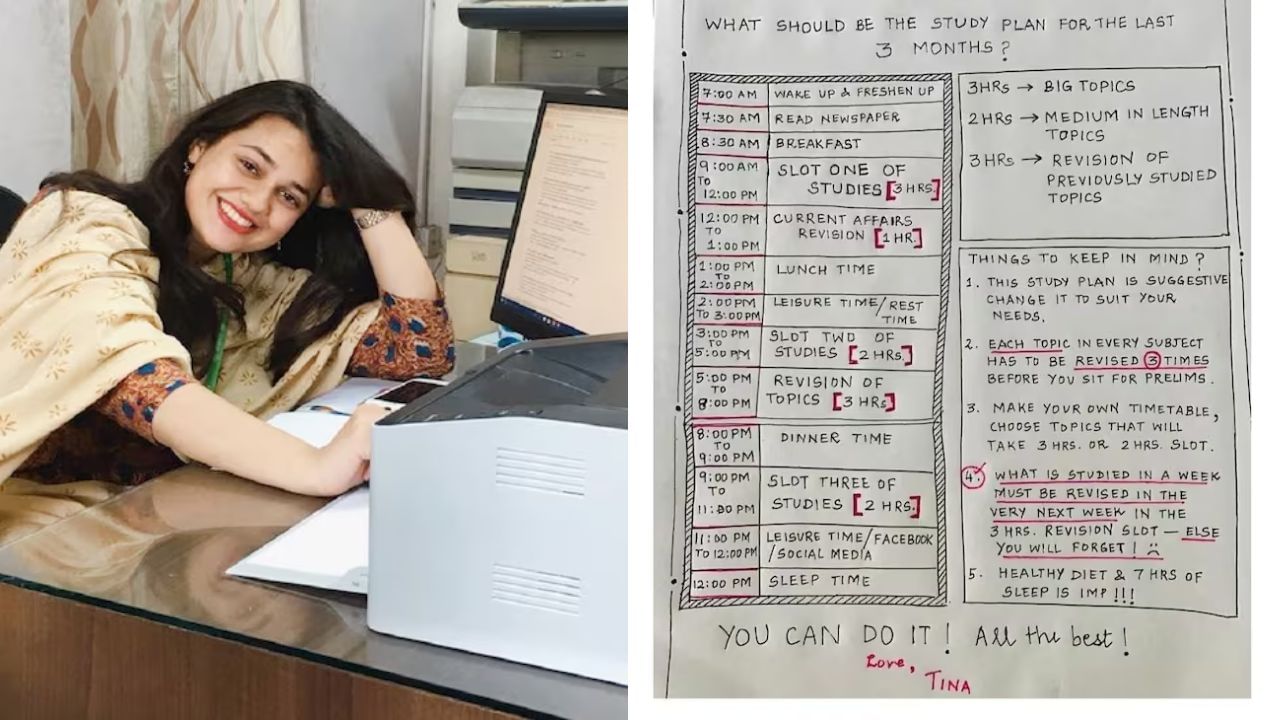 WHAT SHOULD BE THE STUDY PLAN FOR THE LAST
3 MONTHS?
7:00 AM WAKE UP & FRESHEN UP
7:30 AM READ NEWSPAPER
8:30 AM BREAKFAST
9:00 AM SLOT ONE OF
TO STUDIES [3 HRS.]
12:00 PM
12:00 PM CURRENT AFFAIRS
TO REVISION [1 HR.]
1:00 PM
1:00 PM LUNCH TIME
TO
2:00 PM
2:00 PM LEISURE TIME/REST
TO 3:00PM TIME
3:00 PM SLOT TWO OF
TO STUDIES [2 HRS.]
5:00 PM
5:00 PM REVISION OF
TO TOPICS [3 HRS]
8:00 PM
8:00 PM DINNER TIME
TO
9:00 PM
9:00 PM SLOT THREE OF
TO STUDIES [2 HRS.]
11:00 PM
11:00 PM LEISURE TIME/FACEBOOK
TO 12:00PM /SOCIAL MEDIA
12:00 PM SLEEP TIME
3HRS → BIG TOPICS
2HRS → MEDIUM IN LENGTH
TOPICS
3HRS → REVISION OF
PREVIOUSLY STUDIED
TOPICS
THINGS TO KEEP IN MIND?
1. THIS STUDY PLAN IS SUGGESTIVE
CHANGE IT TO SUIT YOUR
NEEDS.
2. EACH TOPIC IN EVERY SUBJECT
HAS TO BE REVISED 3 TIMES
BEFORE YOU SIT FOR PRELIMS.
3. MAKE YOUR OWN TIMETABLE,
CHOOSE TOPICS THAT WILL
TAKE 3 HRS. OR 2 HRS. SLOT.
4. WHAT IS STUDIED IN A WEEK
MUST BE REVISED IN THE
VERY NEXT WEEK IN THE
3 HRS. REVISION SLOT — ELSE
YOU WILL FORGET! ☹
5. HEALTHY DIET & 7 HRS OF
SLEEP IS IMP !!!
YOU CAN DO IT! All the best!
Love,
TINA